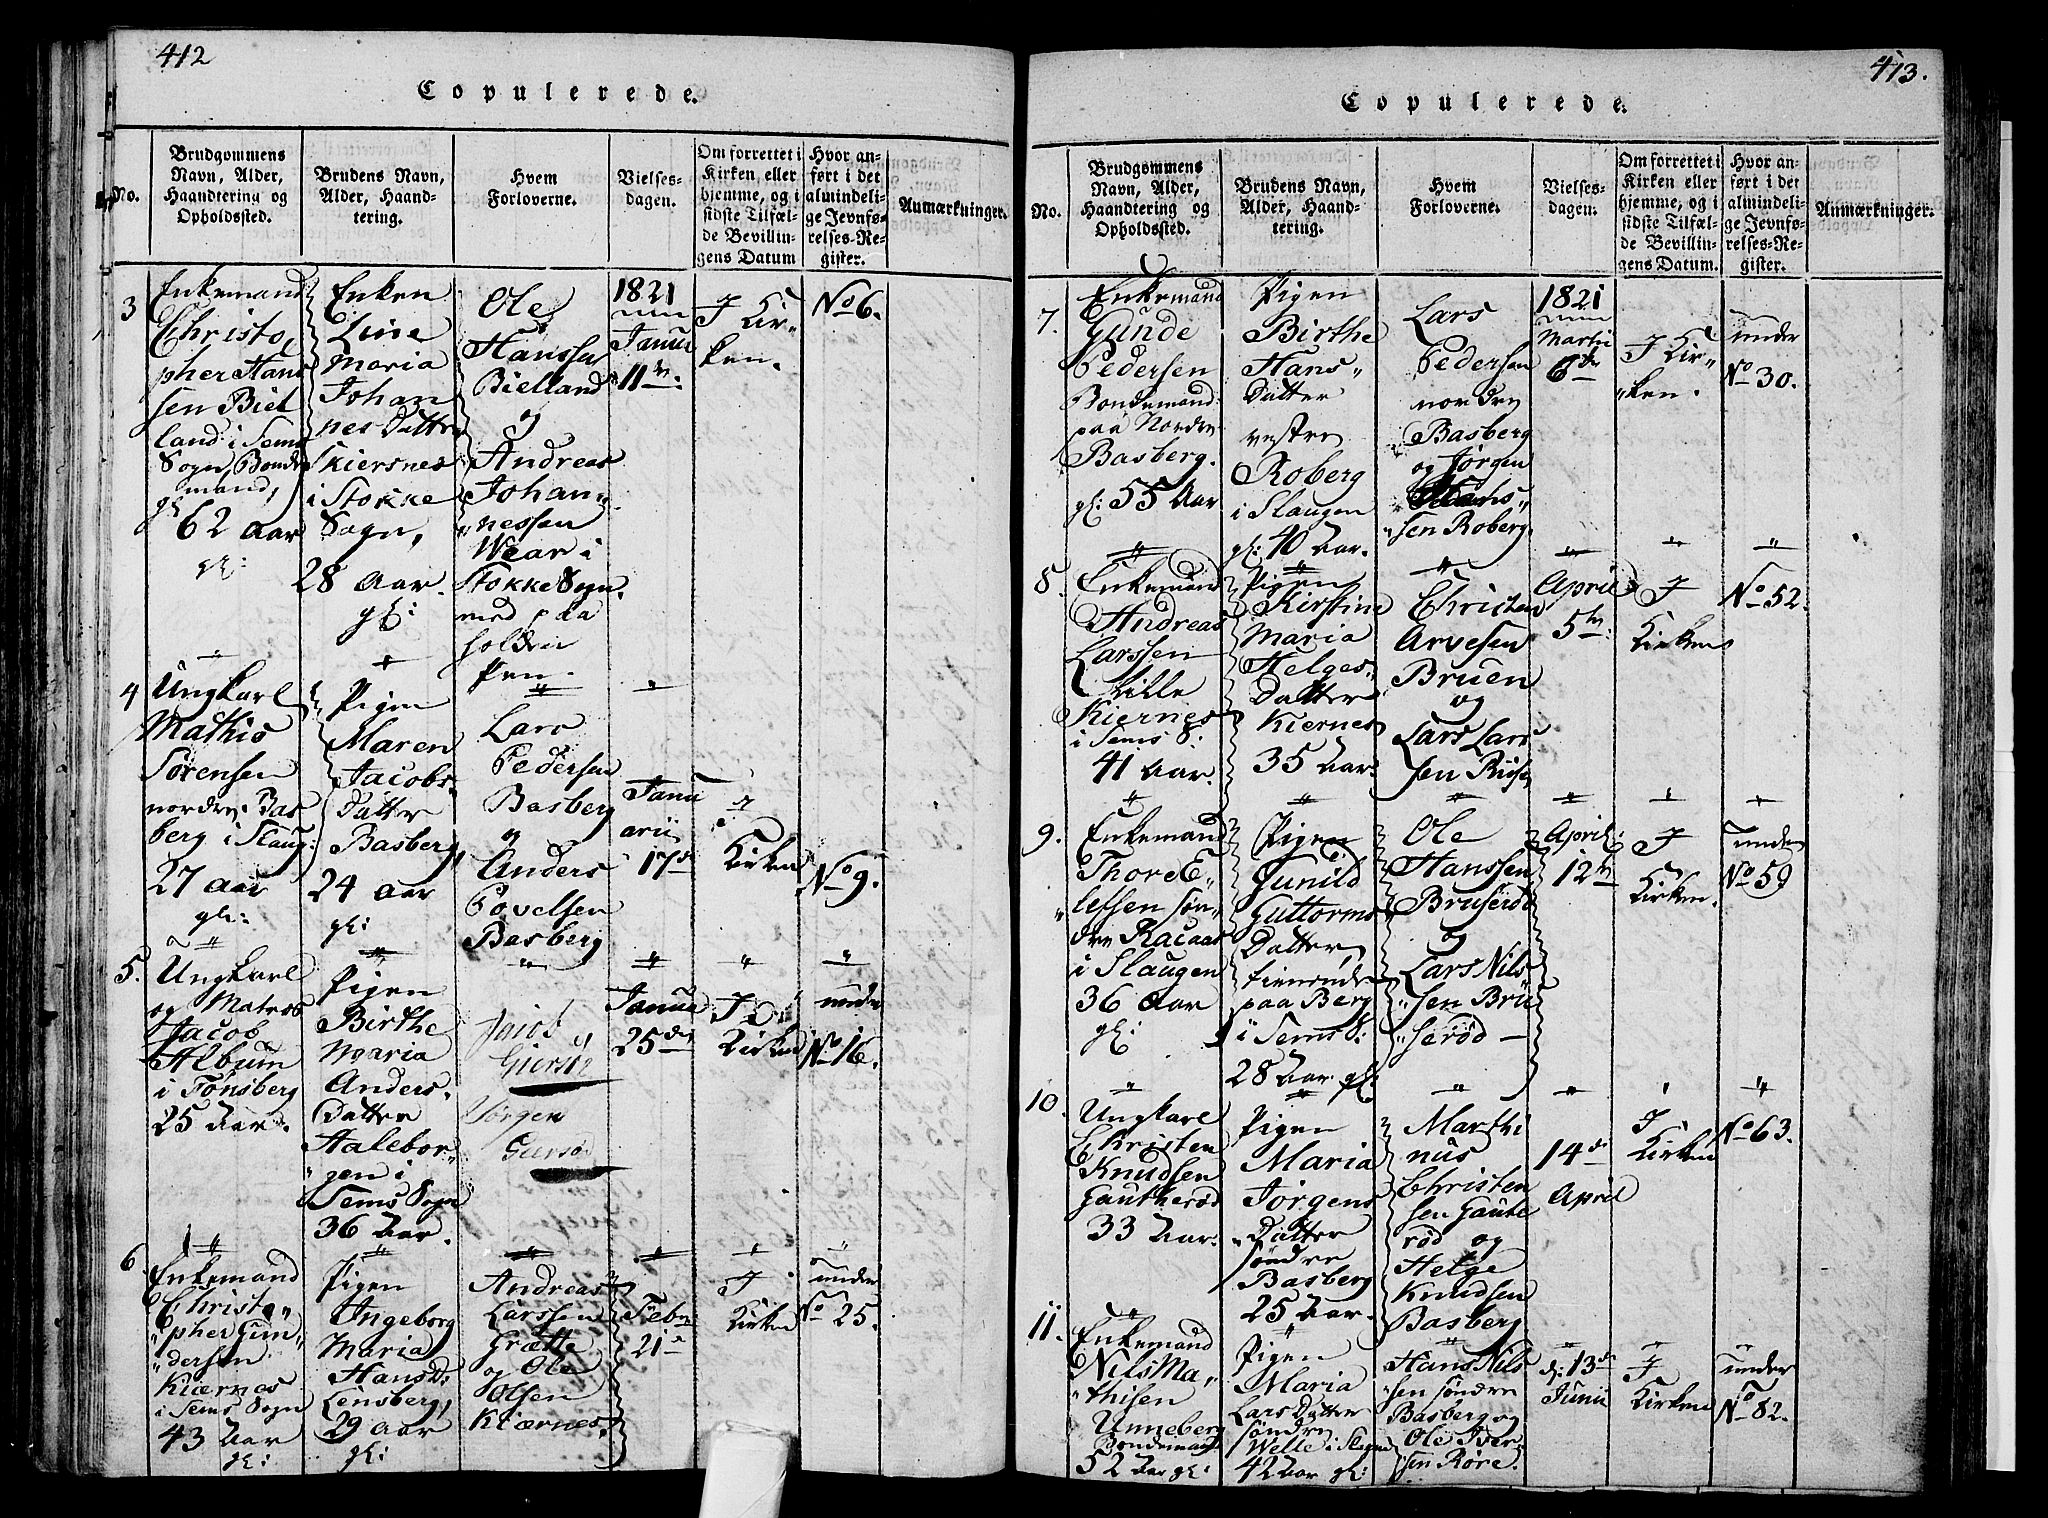 412
Copulerede.
No.
Brudgommens
Navn, Alder,
Haandtering og
Opholdssted.
Brudens Navn,
Alder, Haand-
tering.
Hvem
Forloverne.
Vielses-
dagen.
Om forrettet i
Kirken eller
hjemme, og i
sidste Tilfæl-
de Bevillin-
gens Datum
Hvor an-
ført i det
almindeli-
ge Jevnfø-
relses-Re-
gister.
Anmærkninger.
3
Enkemand
Christo,
pher Han
sen Biel
land i Sems
Sogn, Bonde
mand,
gl
62 Aar
gl:
Enken
Line
Maria
Johan
nes Datter
Skiersnes
i Stokke
Sogn,
28 Aar.
gl:
Ole
Hanssen
Bielland
og
Andreas
Johan„
„nessen
Wear i
Stokke Sogn.
med paa
holden
Pen.
1821
Janua
11te.
I Kir„
ken.
No 6.
4
Ungkarl
Mathis
Sørensen
nordre Bas
berg i Slaug:
27 Aar
gl:
Pigen
Maren
Jacobs.
Datter
Basberg,
24 Aar
gl:
Lars
Pedersen
Basberg
og
Anders
Povelsen
Basberg
Janu
arii
17de
I
Kirken
No 9.
5.
Ungkarl
og Matros
Jacob
Album
i Tønsberg
25 Aar.
Pigen
Birthe
Maria
Anders.
Datter
Aalebor„
„gen i
Sems Sogn
36 Aar.
Jacob
Giersøe
Jørgen
Giersøe
Janua
25de
I
Kirken
under
No 16.
6.
Enkemand
Christo„
„pher Gun„
„dersen
Kiærnes
i Sems Sogn
43 Aar
gl:
Pigen
Ingeborg
Maria
Hans D:
Lensberg,
29 Aar
gl:
Andreas
Larssen
Grætte
og Ole
Olsen
Kiærnes.
Febr
21
I
Kirken
under
No 25.
413.
Copulerede.
No.
Brudgommens
Navn, Alder,
Haandtering og
Opholdssted.
Brudens Navn,
Alder, Haand-
tering.
Hvem
Forloverne.
Vielses-
dagen.
Om forrettet i
Kirken eller
hjemme, og i
sidste Tilfæl-
de Bevillin-
gens Datum.
Hvor an-
ført i det
almindeli-
ge Jevnfø-
relses-Re-
gister.
Anmærkninger.
7.
Enkemand
Gunde
Pedersen
Bondemand
paa Nordre
Basberg.
gl: 55 Aar
Pigen
Birthe
Hans„
Datter
vestre
Roberg
i Slaugen
gl: 40 Aar.
Lars
Pedersen
nordre
Basberg
og Jørgen
Hans„
„sen Roberg.
1821
Martii
6te
I Kir„
„ken.
under
No 30.
8.
Enkemand
Andreas
Larssen
Lille
Kiernes
i Sems S:
41 Aar.
Pigen
Kirstine
Maria
Helges.
Datter
Kiernes
35 Aar.
Christen
Arvesen
Bruen
og
Lars Lars
sen
April
5te
I
Kirken
No 52.
9.
Enkemand
Thore E„
„lefsen søn„
dre Racaas
i Slaugen
36 Aar
gl:
Pigen
Gunild
Guttorms
Datter,
tienende
paa Berg
i Sems S:
28 Aar gl:
Ole
Hanssen
Bruserød
og
Lars Nils
„sen Bru
„serød —
April
12te
I
Kirken.
under
No 59
10.
Ungkarl
Christen
Knudsen
Gautherød
33 Aar.
Pigen
Maria
Jørgens
Datter
søndre
Basberg
25 Aar.
Marthi
nus
Christen
sen Gaute
rød og
Helge
Knudsen
Basberg
14de
April
I
Kirken
No 63.
11.
Enkemand
Nils Ma„
„thisen
Unneberg
Bondemand
52 Aar gl:
Pigen
Maria
Lars Datter
søndre
Welle i Slagen
42 Aar gl:
Hans Nils
„sen søndre
Basberg og
Ole Iver„
„sen Røre.
d: 13de
Junii
I
Kirken
under
No 82.